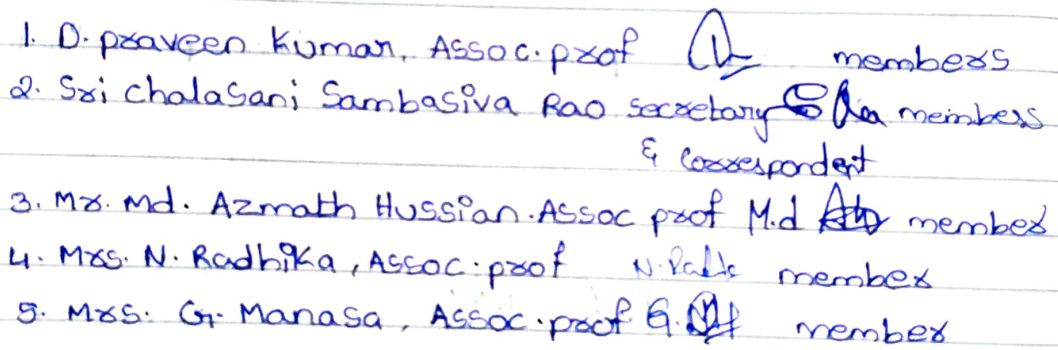 1. D. praveen Kumar, Assoc. prof members
2. Sri chalasani Sambasiva Rao secretary members
& correspondent
3. Mr. Md. Azmath Hussian. Assoc prof M.d member
4. Mrs. N. Radhika, Assoc. prof N. member
5. Mrs. G. Manasa, Assoc. prof G. member